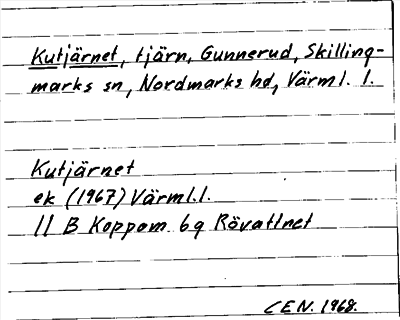 Kutjärnet, tjärn, Gunnerud, Skilling-
marks sn, Nordmarks hd, Värml. l.
Kutjärnet
ek (1967) Värml.l.
11 B Koppom 6g Rävattnet
CEN. 1968.